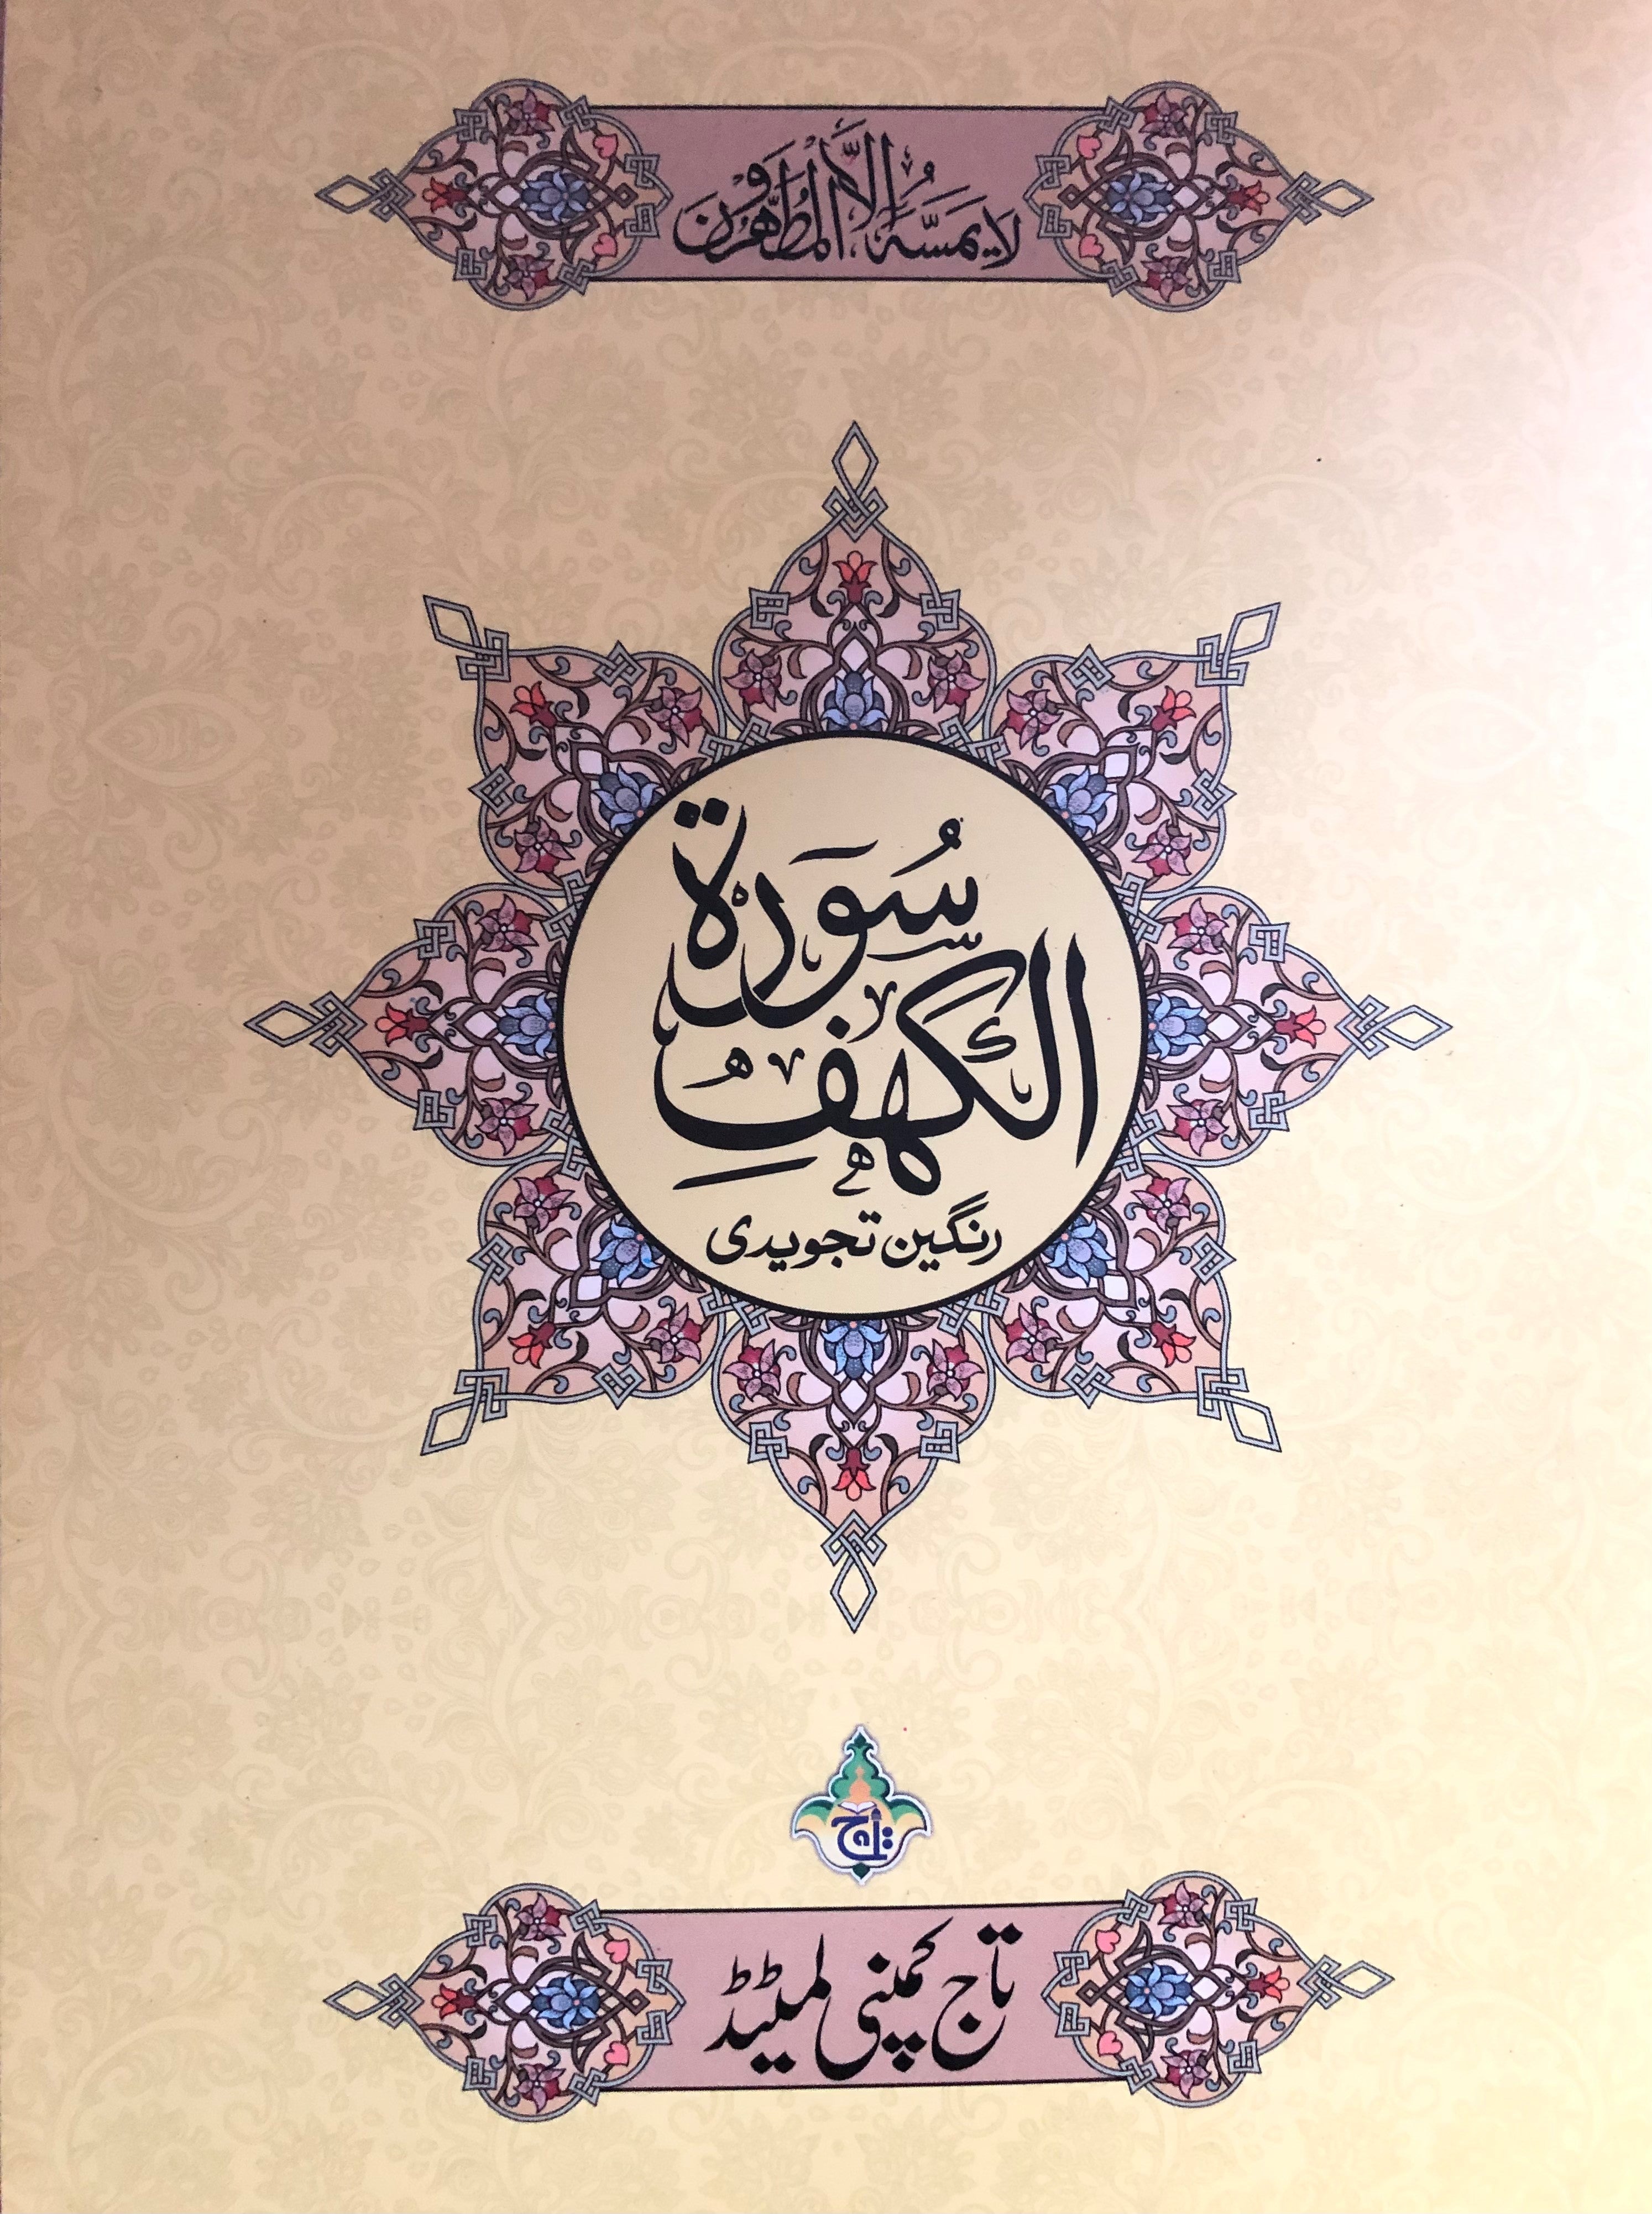 لَا يَمَسُّهُ إِلَّا الْمُطَهَّرُونَ
سُوۡرَة
الۡكَهۡفِ
رنگین تجویدی
تاج
تاج کمپنی لمیٹڈ